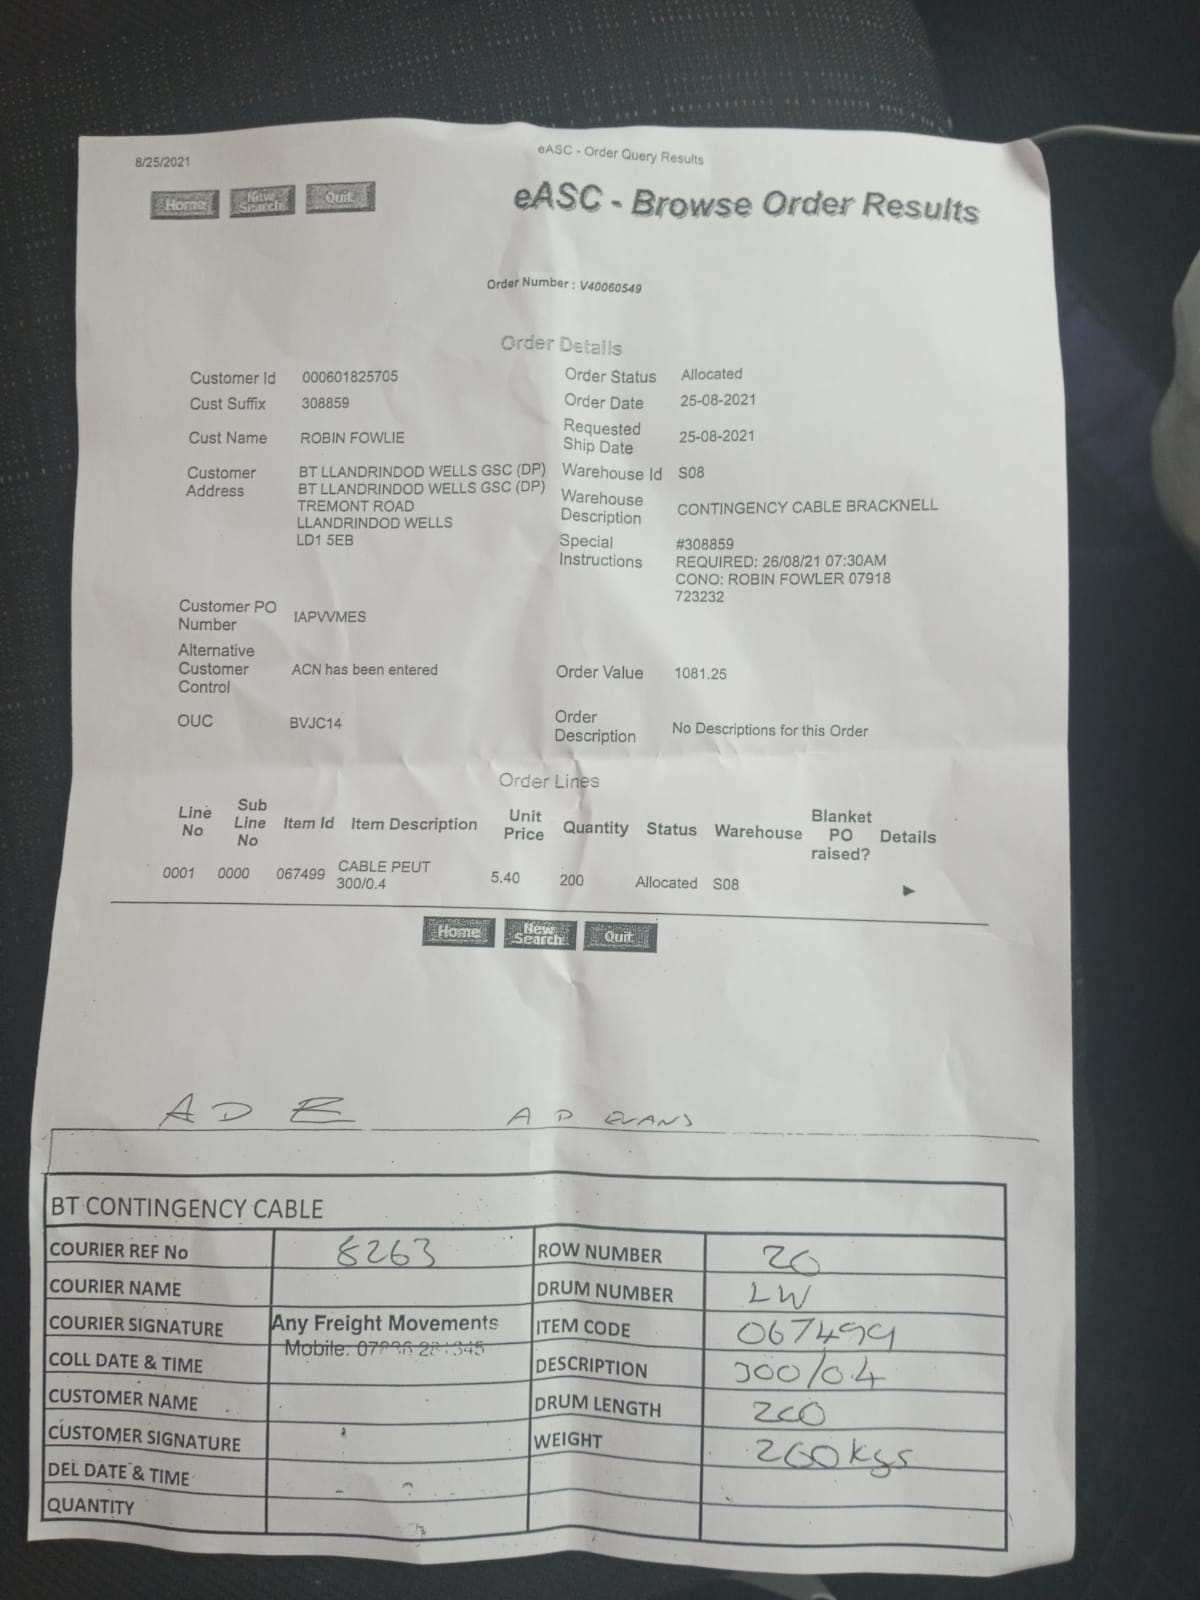 8/25/2021
eASC - Order Query Results
Home New Search Quit
eASC - Browse Order Results
Order Number : V40060549
Order Details
Customer Id 000601825705
Order Status Allocated
Cust Suffix 308859
Order Date 25-08-2021
Cust Name ROBIN FOWLIE
Requested Ship Date 25-08-2021
Customer Address BT LLANDRINDOD WELLS GSC (DP)
BT LLANDRINDOD WELLS GSC (DP)
TREMONT ROAD
LLANDRINDOD WELLS
LD1 5EB
Warehouse Id S08
Warehouse Description CONTINGENCY CABLE BRACKNELL
Special Instructions #308859
REQUIRED: 26/08/21 07:30AM
CONO: ROBIN FOWLER 07918
723232
Customer PO Number IAPVVMES
Alternative Customer Control ACN has been entered
Order Value 1081.25
OUC BVJC14
Order Description No Descriptions for this Order
Order Lines
Line No Sub Line No Item Id Item Description Unit Price Quantity Status Warehouse Blanket PO raised? Details
0001 0000 067499 CABLE PEUT 300/0.4 5.40 200 Allocated S08
Home New Search Quit
A D E A D EVANS
BT CONTINGENCY CABLE
COURIER REF No 8263 ROW NUMBER 20
COURIER NAME DRUM NUMBER LW
COURIER SIGNATURE Any Freight Movements ITEM CODE 067499
Mobile:
COLL DATE & TIME DESCRIPTION 300/0.4
CUSTOMER NAME DRUM LENGTH 200
CUSTOMER SIGNATURE WEIGHT 260kgs
DEL DATE & TIME
QUANTITY